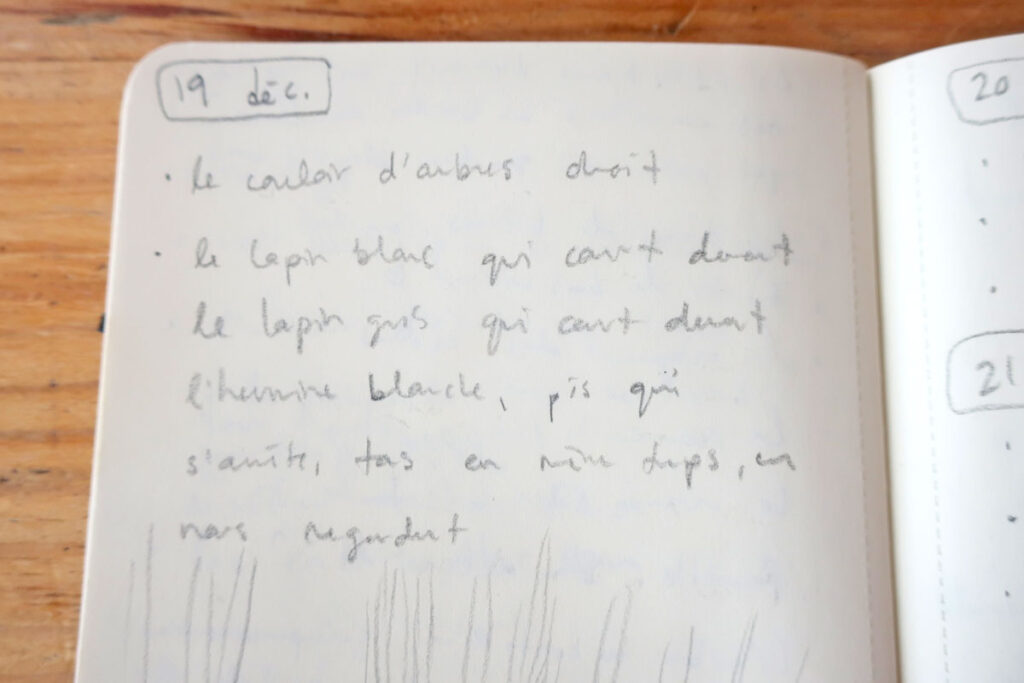 19 déc.
• le couloir d'arbres droit
• le lapin blanc qui court devant
le lapin gris qui court devant
l'hermine blanche, pis qui
s'arrête, tous en même temps, en
nous regardant
20
21